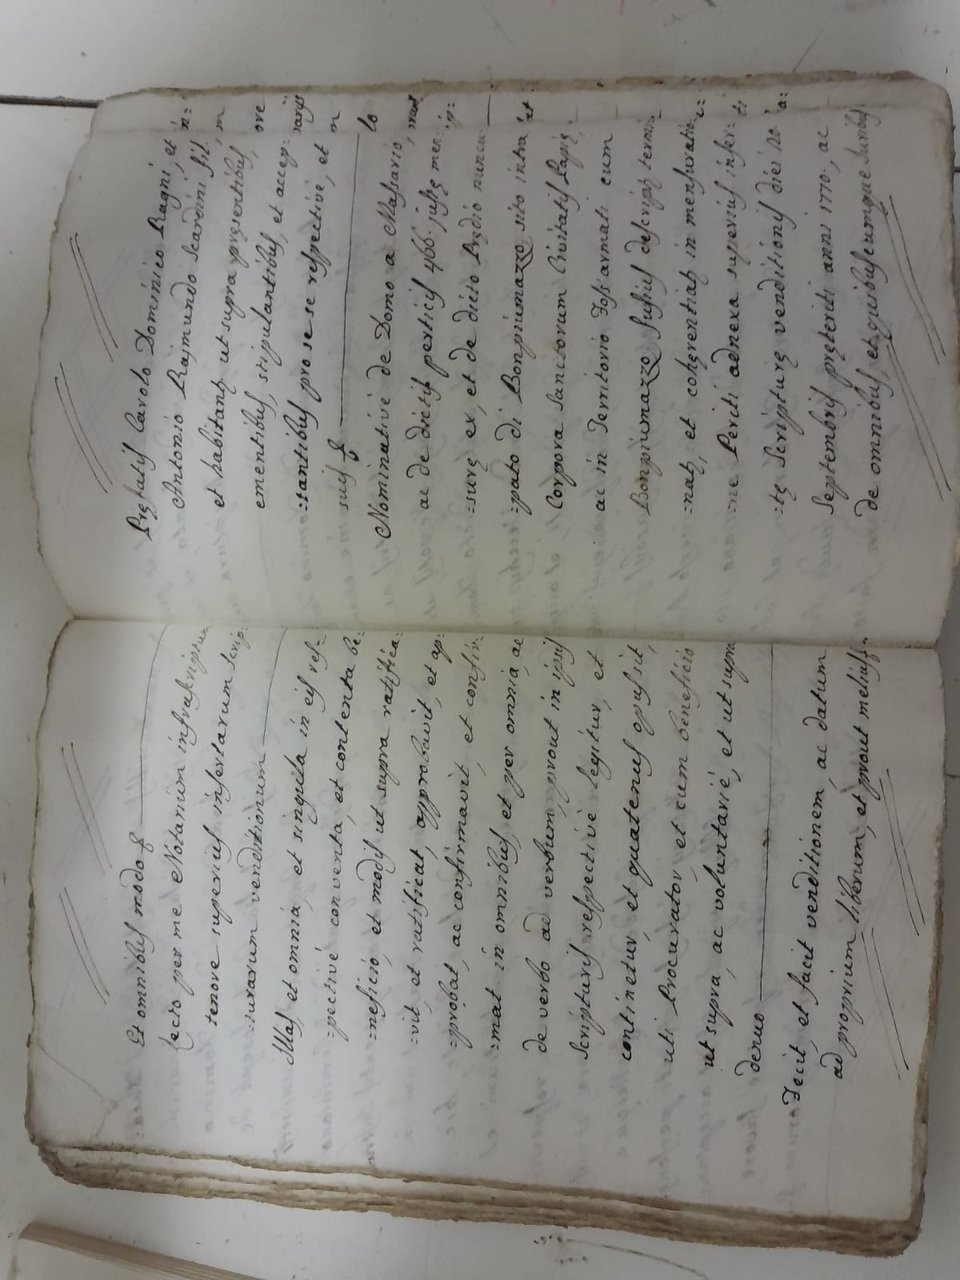 Et omnibus modo &
Lecto per me Notarium infrascriptum
tenore superius insertarum Scrip:
:turarum venditionum
Illas, et omnia, et singula in eis res:
:pectivè conventa, et contenta be:
:neficio, et modis ut supra ratifica:
:vit, et ratificat, approbavit, et ap:
:probat, ac confirmavit, et confir:
:mat in omnibus, et per omnia, ac
de verbo ad verbum, prout in ipsis
Scripturis respectivè legitur, et
continetur, et quatenus opus sit,
uti Procurator, et cum beneficio
ut supra, ac voluntariè, et ut supra
denuo
Fecit, et facit venditionem, ac datum
ad proprium liberum, et prout melius
Pręfatis Carolo Dominico Ragni, et
Antonio Rajmundo Scardini fil.
et habitantę ut supra pręsentibus,
ementibus, stipulantibus, et accep:
:tantibus pro se se respectivè, et
suis &
Nominativè de Domo a Massario,
ac de dictis perticis 466. justę men:
:surę ex, et de dicto Prędio nuncu:
:pato di Bonpiumazzo sito intra
Corpora Sanctorum Civitatis Papię,
ac in Territorio Fossarmati cum
Bonpiumazzo fusius descript. termi:
:nat, et coherentiat in mensuratio:
:ne Periti adnexa superius inser:
:tę Scripturę venditionis diei 20
Septembris pręteriti anni 1770, ac
de omnibus, et quibuscumque Juribus